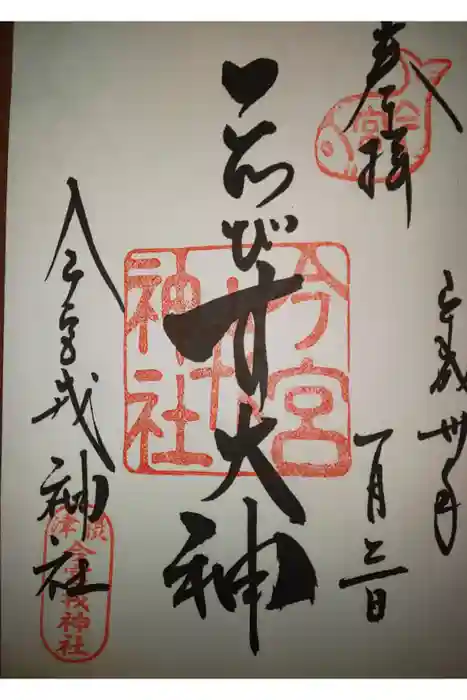 奉拝
平成卅年
一月三日
ゑびす大神
今宮戎神社
今宮
今宮
戎
神社
今宮戎神社